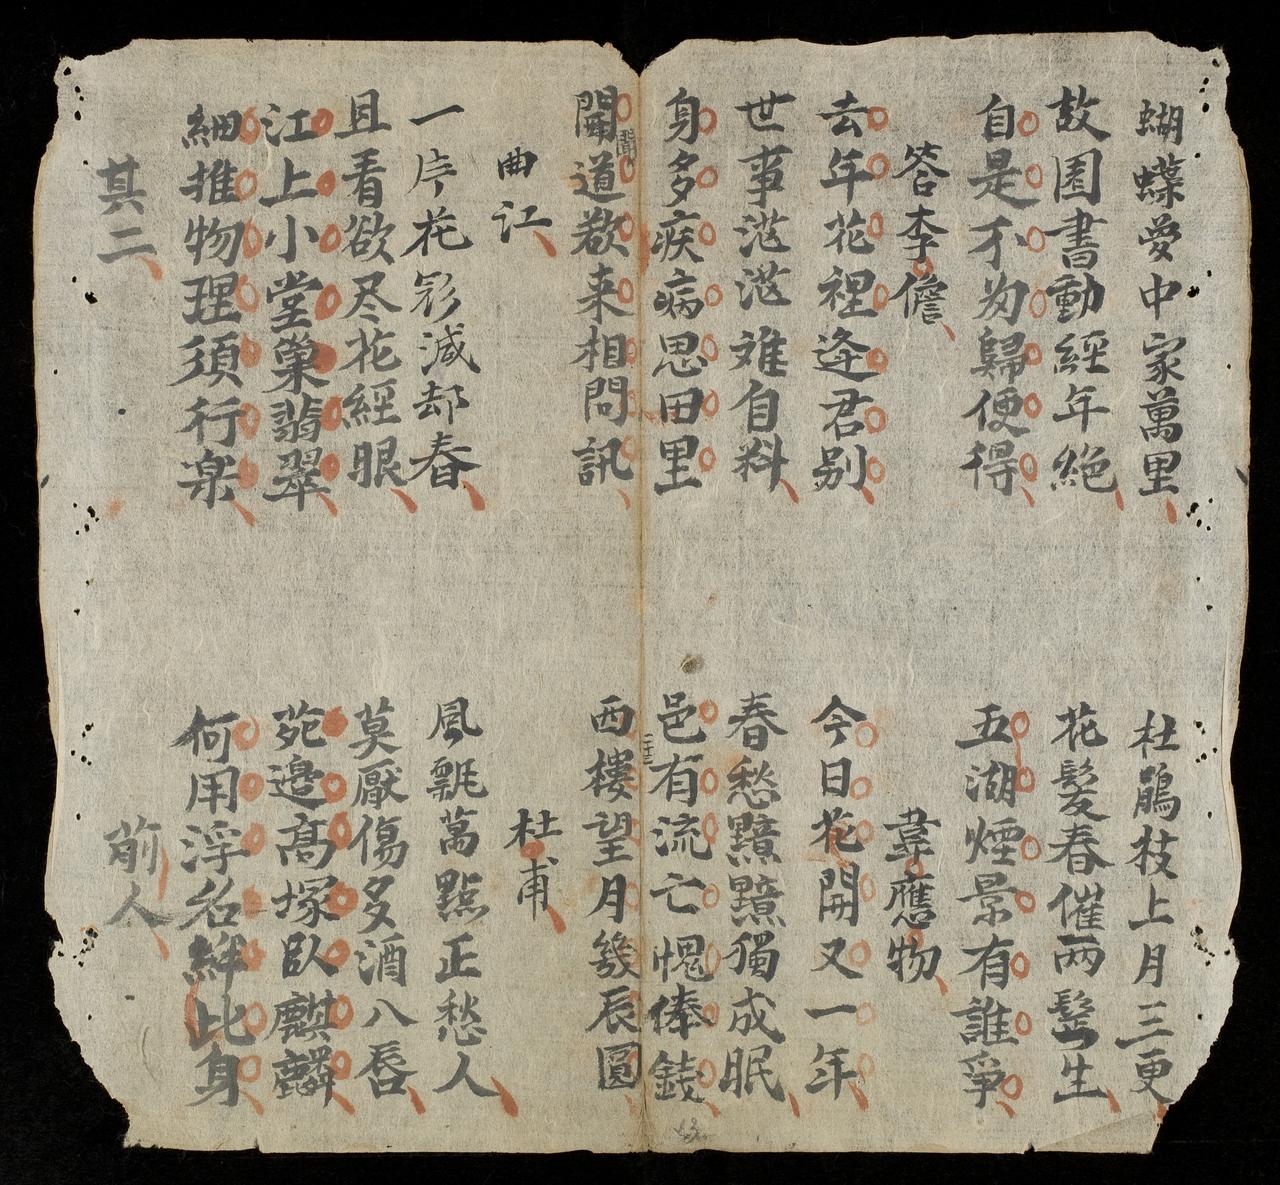 蝴蝶夢中家萬里
杜鵑枝上月三更
故園書動經年絶
花髮春催兩鬂生
自是不為歸便得
五湖煙景有誰爭
答李儋
韋應物
去年花裡逢君别
今日花開又一年
世事茫茫难自料
春愁黯黯獨成眠
身多疾病思田里
邑有流亡愧俸錢
道欲来相問訊
聞
西樓望月幾辰圓
曲江
杜甫
一片花彩減却春
風飄萬點正愁人
且看欲尽花經眼
莫厭傷多酒八唇
江上小堂巢翡翠
苑邉髙塚卧麒麟
細推物理須行楽
何用浮名絆此身
其二
前人